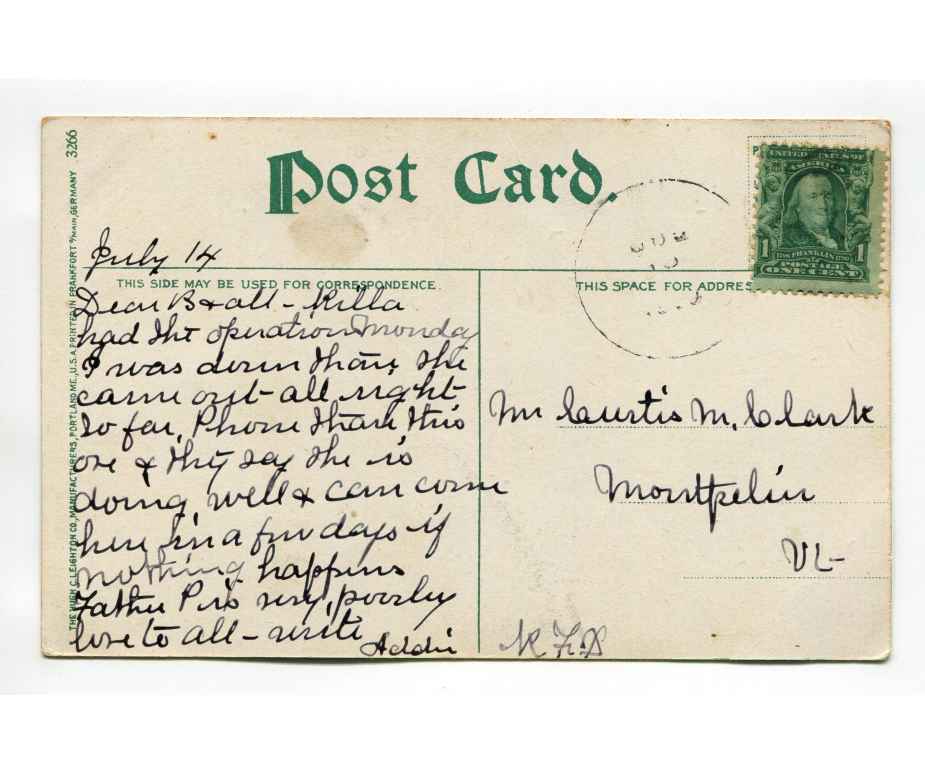 3266
Post Card.
THE HUGH C. LEIGHTON CO., MANUFACTURERS, PORTLAND, ME., U.S.A. PRINTED IN FRANKFORT o/MAIN, GERMANY
July 14
THIS SIDE MAY BE USED FOR CORRESPONDENCE.
Dear B & all - Rilla
had the operation Monday
I was down thare, she
came out all right
so far, Phone thare this
ore & they say she is
doing well & can come
here in a few days if
nothing happens
Father P is very poorley
love to all - write
Addie
UNITED STATES OF
AMERICA
1 1
FRANKLIN
POSTAGE
ONE CENT
THIS SPACE FOR ADDRES
Mr Curtis M. Clark
Montpelier
Vt-
R F D